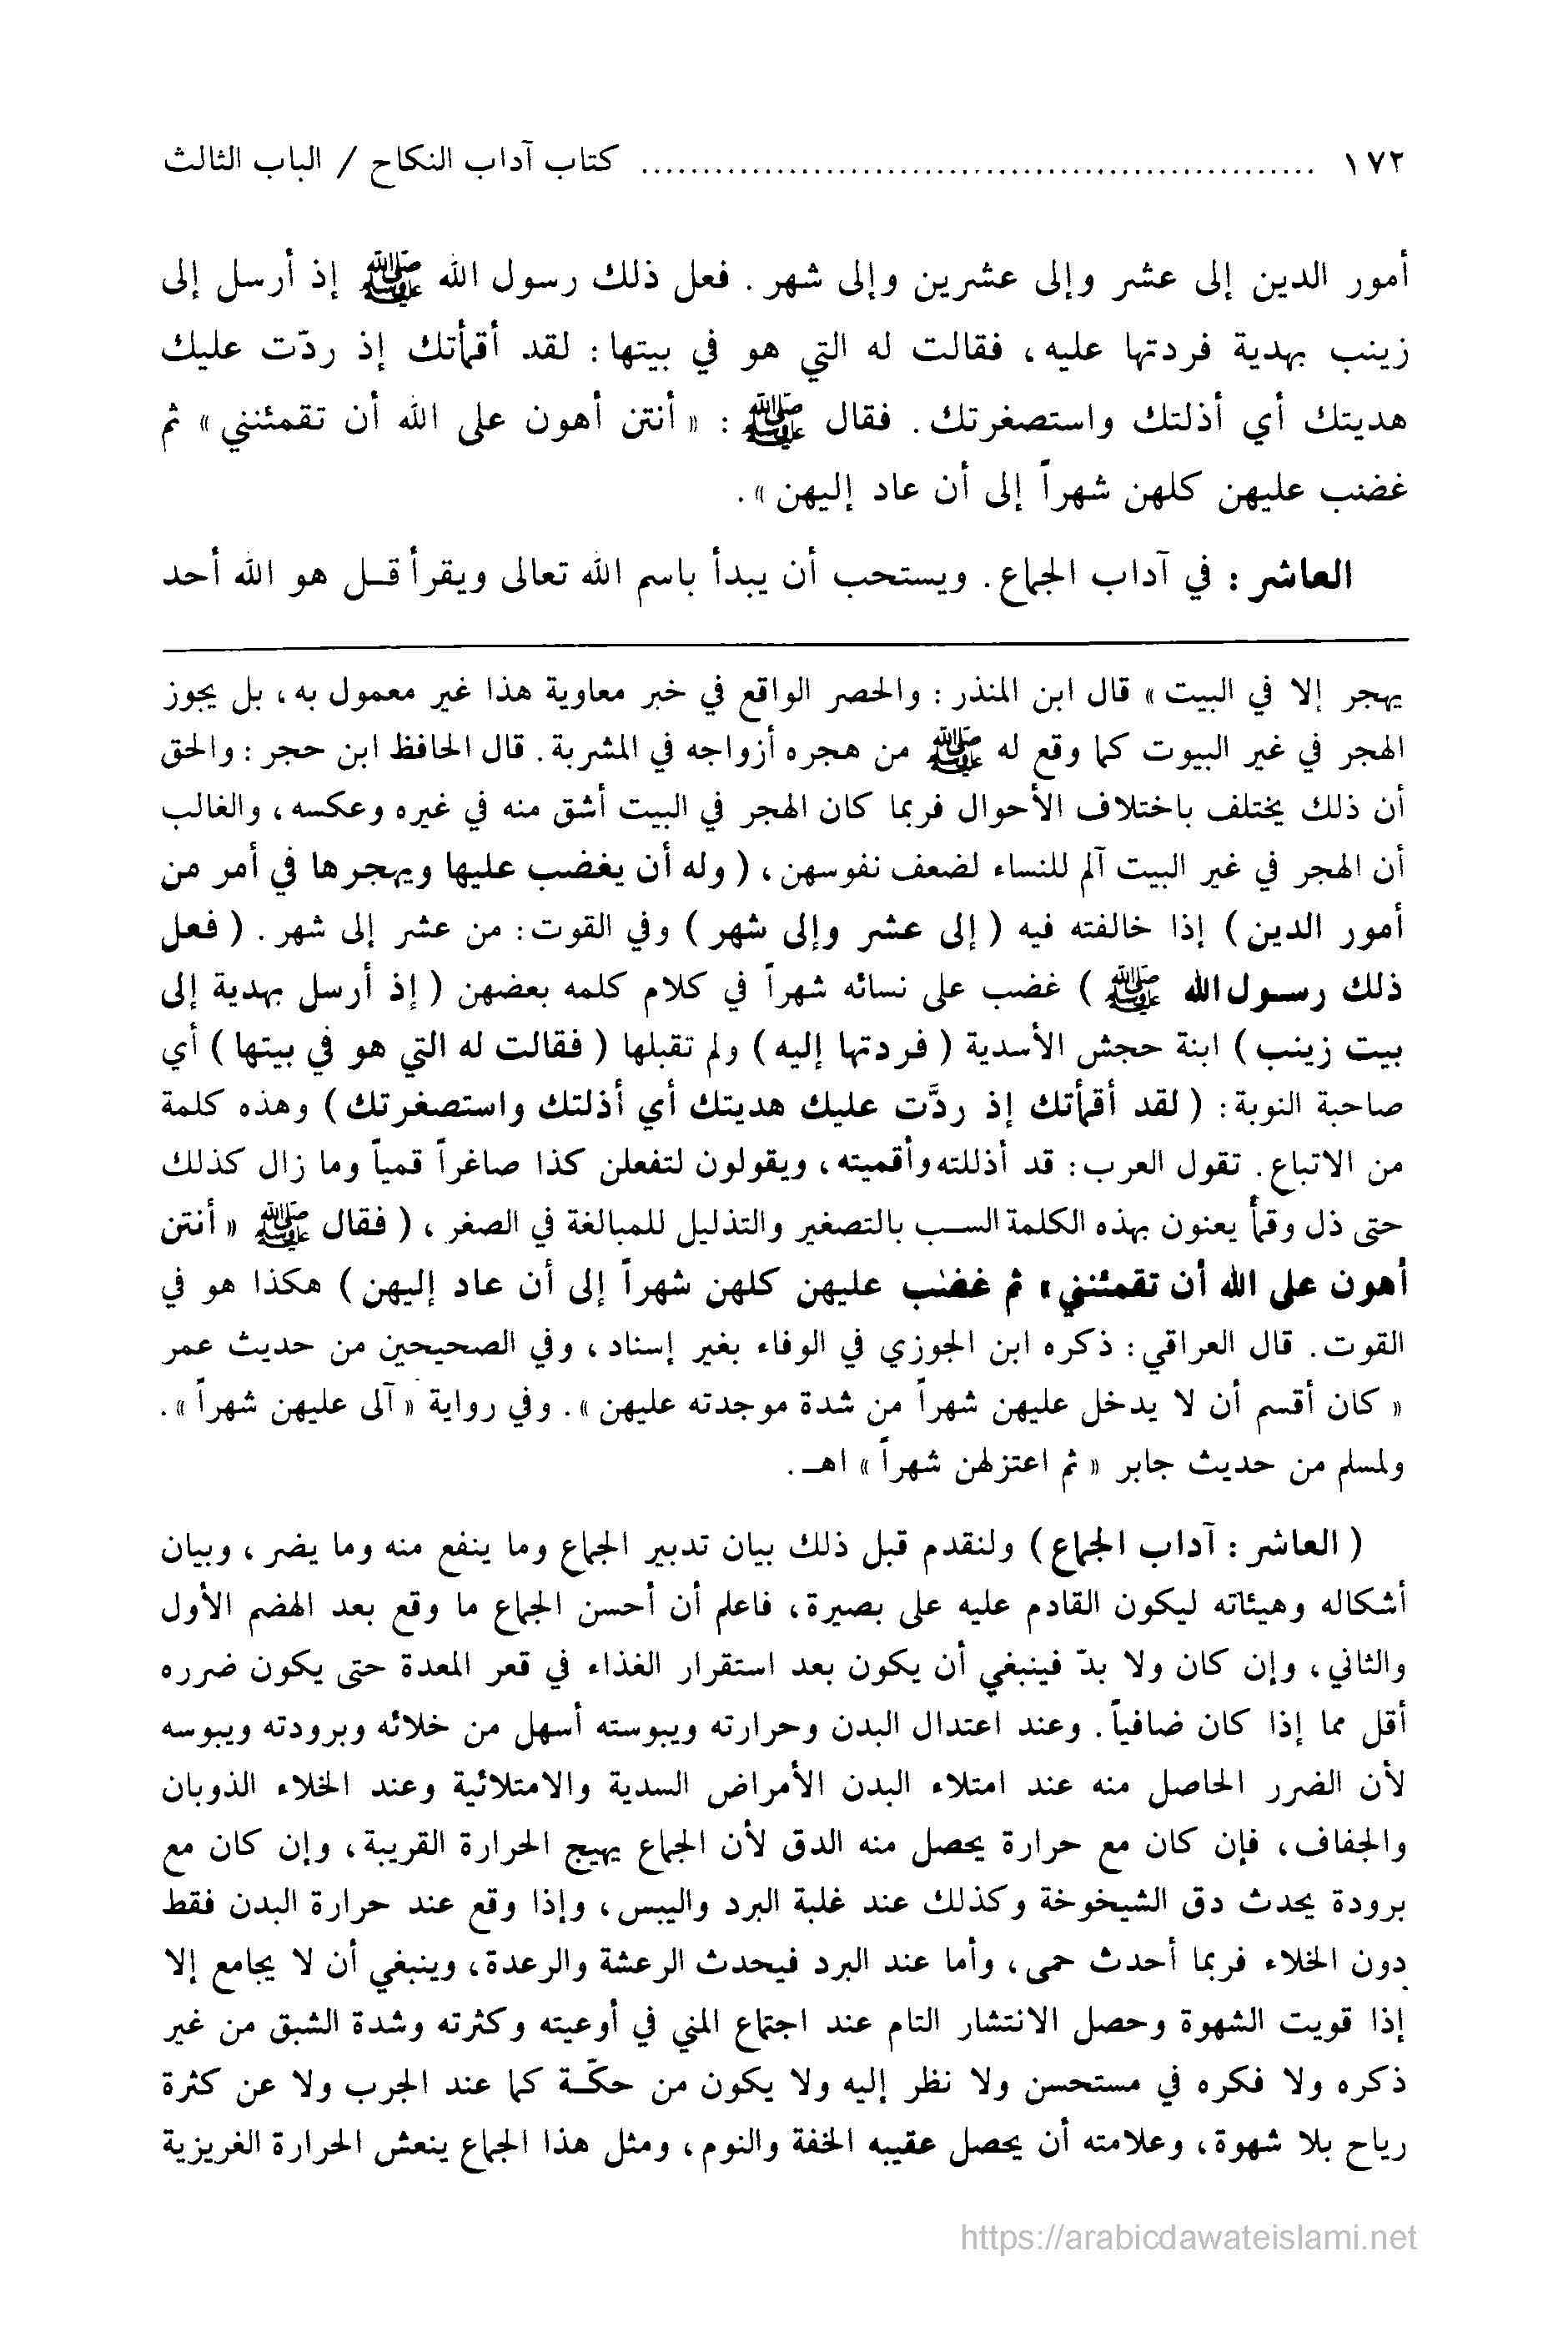 ١٧٢ ........................................................ كتاب آداب النكاح / الباب الثالث
أمور الدين إلى عشر وإلى عشرين وإلى شهر . فعل ذلك رسول الله ﷺ إذ أرسل إلى
زينب بهدية فردتها عليه ، فقالت له التي هو في بيتها : لقد أقمأتك إذ ردّت عليك
هديتك أي أذلتك واستصغرتك . فقال ﷺ : « أنتن أهون على الله أن تقمئنني » ثم
غضب عليهن كلهن شهراً إلى أن عاد إليهن » .
العاشر : في آداب الجماع . ويستحب أن يبدأ باسم الله تعالى ويقرأ قل هو الله أحد
يهجر إلا في البيت » قال ابن المنذر : والحصر الواقع في خبر معاوية هذا غير معمول به ، بل يجوز
الهجر في غير البيوت كما وقع له ﷺ من هجره أزواجه في المشربة . قال الحافظ ابن حجر : والحق
أن ذلك يختلف باختلاف الأحوال فربما كان الهجر في البيت أشق منه في غيره وعكسه ، والغالب
أن الهجر في غير البيت آلم للنساء لضعف نفوسهن ، ( وله أن يغضب عليها ويهجرها في أمر من
أمور الدين ) إذا خالفته فيه ( إلى عشر وإلى شهر ) وفي القوت : من عشر إلى شهر . ( فعل
ذلك رسول الله ﷺ ) غضب على نسائه شهراً في كلام كلمه بعضهن ( إذ أرسل بهدية إلى
بيت زينب ) ابنة حجش الأسدية ( فردتها إليه ) ولم تقبلها ( فقالت له التي هو في بيتها ) أي
صاحبة النوبة : ( لقد أقمأتك إذ ردَّت عليك هديتك أي أذلتك واستصغرتك ) وهذه كلمة
من الاتباع . تقول العرب : قد أذللته وأقميته ، ويقولون لتفعلن كذا صاغراً قمياً وما زال كذلك
حتى ذل وقمأ يعنون بهذه الكلمة السب بالتصغير والتذليل للمبالغة في الصغر ، ( فقال ﷺ « أنتن
أهون على الله أن تقمئنني » ثم غضب عليهن كلهن شهراً إلى أن عاد إليهن ) هكذا هو في
القوت . قال العراقي : ذكره ابن الجوزي في الوفاء بغير إسناد ، وفي الصحيحين من حديث عمر
« كان أقسم أن لا يدخل عليهن شهراً من شدة موجدته عليهن » . وفي رواية « آلى عليهن شهراً » .
ولمسلم من حديث جابر « ثم اعتزلهن شهراً » اهـ .
( العاشر : آداب الجماع ) ولنقدم قبل ذلك بيان تدبير الجماع وما ينفع منه وما يضر ، وبيان
أشكاله وهيئاته ليكون القادم عليه على بصيرة ، فاعلم أن أحسن الجماع ما وقع بعد الهضم الأول
والثاني ، وإن كان ولا بدّ فينبغي أن يكون بعد استقرار الغذاء في قعر المعدة حتى يكون ضرره
أقل مما إذا كان ضافياً . وعند اعتدال البدن وحرارته ويبوسته أسهل من خلائه وبرودته ويبوسه
لأن الضرر الحاصل منه عند امتلاء البدن الأمراض السدية والامتلائية وعند الخلاء الذوبان
والجفاف ، فإن كان مع حرارة يحصل منه الدق لأن الجماع يهيج الحرارة القريبة ، وإن كان مع
برودة يحدث دق الشيخوخة وكذلك عند غلبة البرد واليبس ، وإذا وقع عند حرارة البدن فقط
دون الخلاء فربما أحدث حمى ، وأما عند البرد فيحدث الرعشة والرعدة ، وينبغي أن لا يجامع إلا
إذا قويت الشهوة وحصل الانتشار التام عند اجتماع المني في أوعيته وكثرته وشدة الشبق من غير
ذكره ولا فكره في مستحسن ولا نظر إليه ولا يكون من حكّة كما عند الجرب ولا عن كثرة
رياح بلا شهوة ، وعلامته أن يحصل عقيبه الخفة والنوم ، ومثل هذا الجماع ينعش الحرارة الغريزية
https://arabicdawateislami.net